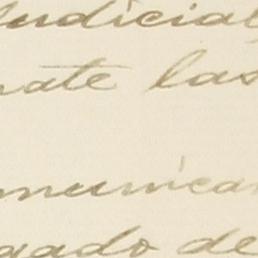 Judicial
nate las
municar
gado de